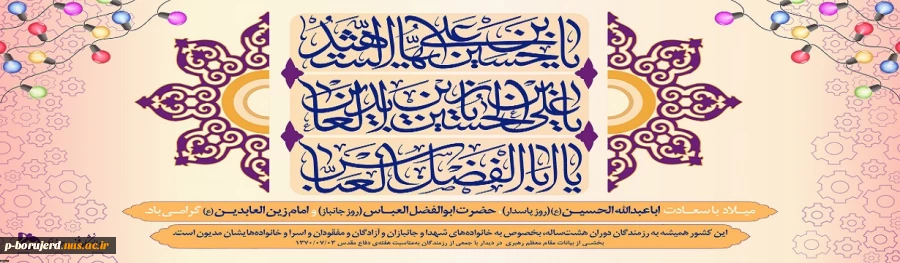 یا حسین بن علی ایها الشهید
یا علی بن الحسین یا زین العابدین
یا اباالفضل العباس
میلاد با سعادت اباعبدالله الحسین (ع) (روز پاسدار)، حضرت ابوالفضل العباس (روز جانباز) و امام زین العابدین (ع) گرامی باد.
این کشور همیشه به رزمندگان دوران هشت‌ساله، بخصوص به خانواده‌های شهدا و جانبازان و آزادگان و مفقودان و اسرا و خانواده‌هایشان مدیون است.
بخشی از بیانات مقام معظم رهبری در دیدار با جمعی از رزمندگان به‌مناسبت هفته‌ی دفاع مقدس ۱۳۷۰/۰۷/۰۳
p-borujerd.nus.ac.ir